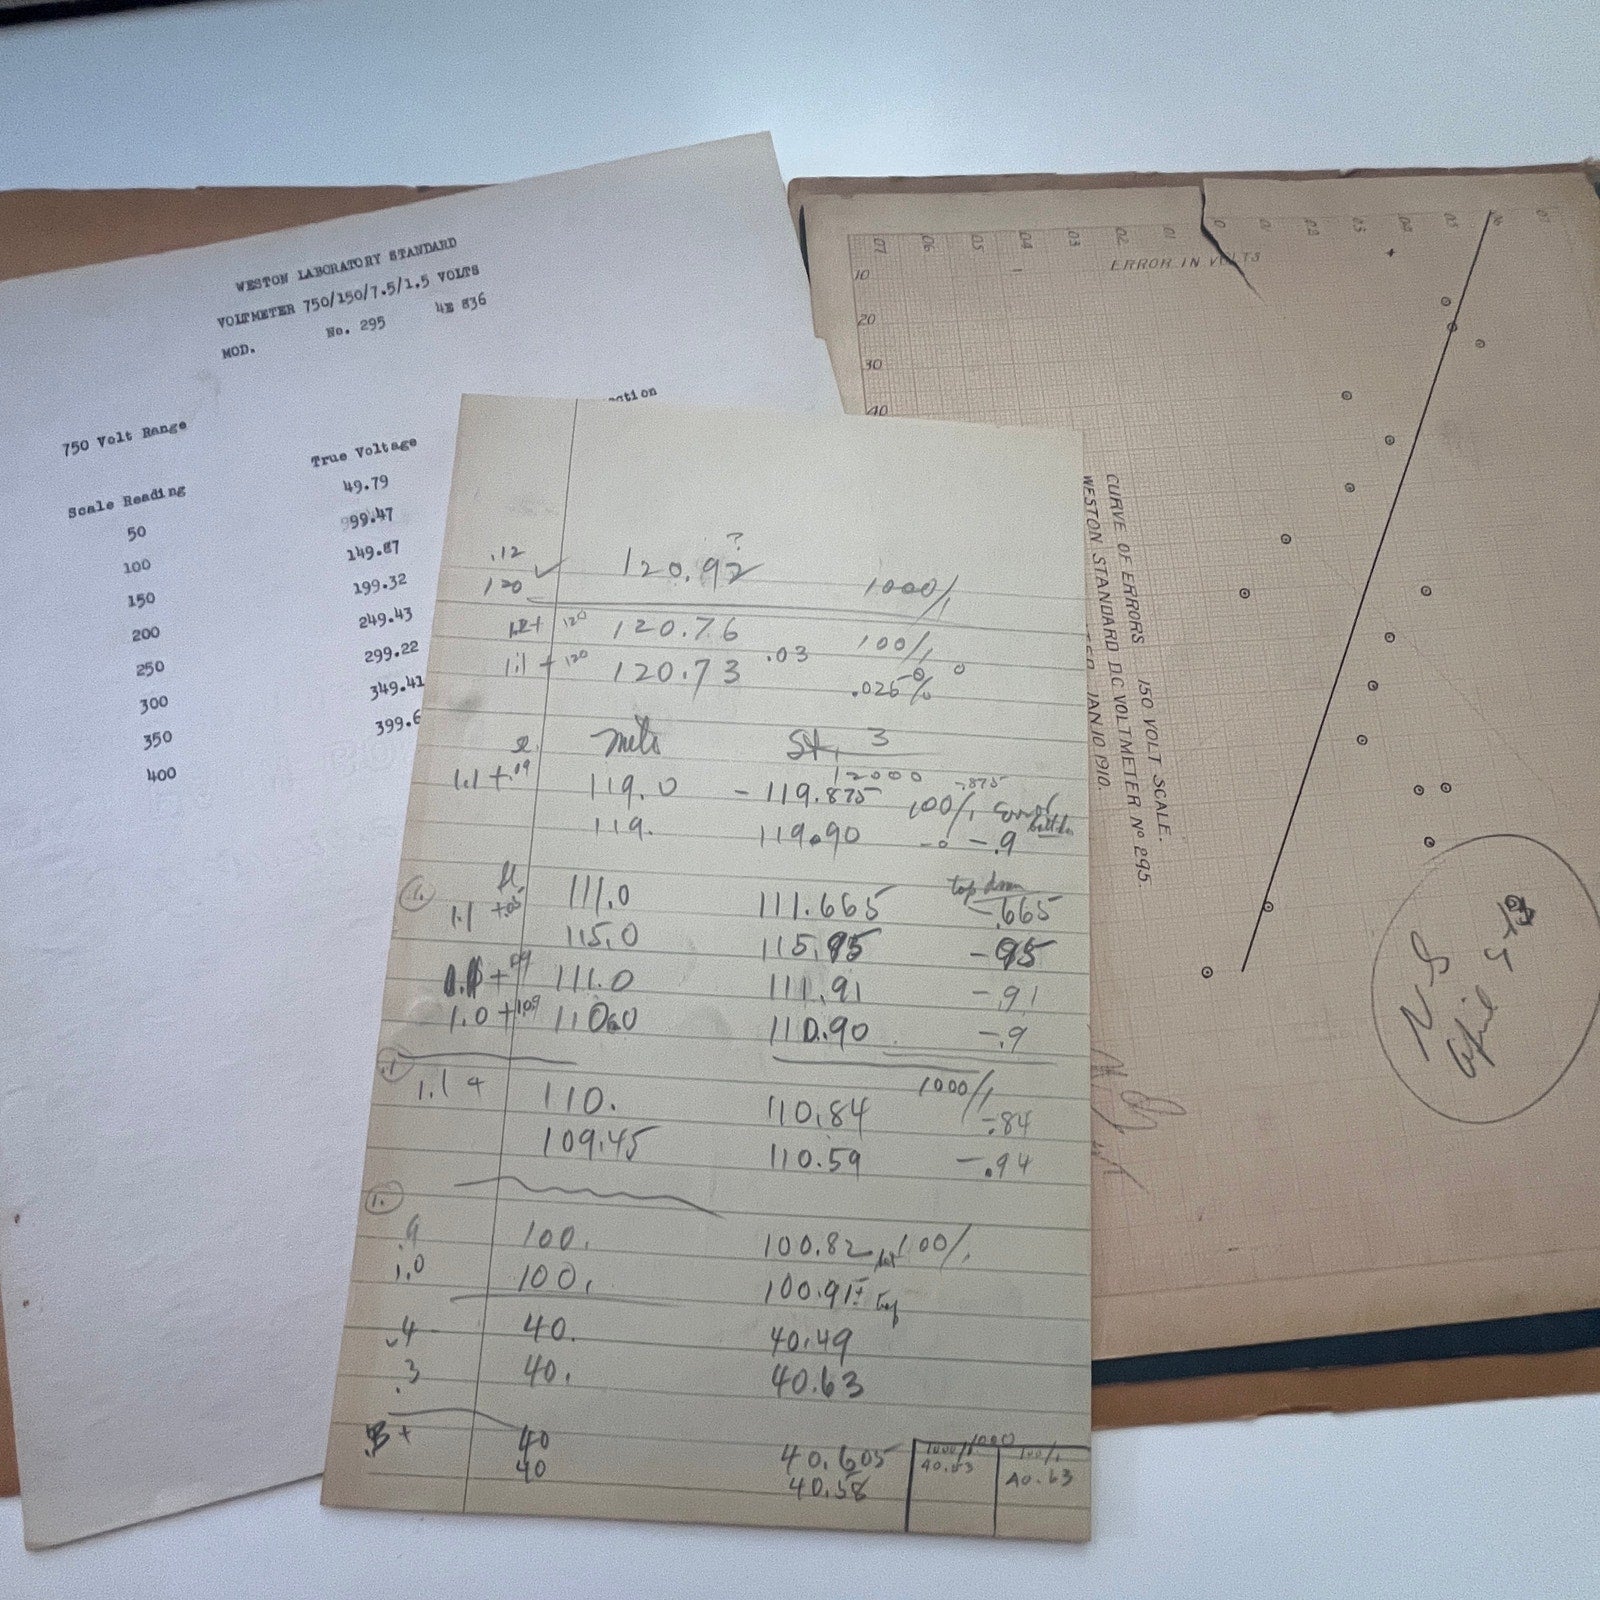 WESTON LABORATORY STANDARD
VOLTMETER 750/150/7.5/1.5 VOLTS
MOD. No. 295 4E 836
750 Volt Range
Scale Reading True Voltage
50 49.79
100 99.47
150 149.87
200 199.32
250 249.43
300 299.22
350 349.41
400 399.6
.12 ?
120 ✓ 120.92 1000/1
120 120.76 100/1
1.1 + 120 120.73 .03 .025 %
St, 3
12000 -.875
1.1 + .09 119.0 - 119.875 100/1 Error
119. 119.90 - .9
111.0 111.665 top down -.665
1.1 +.05 115.0 115.95 -.95
+ .09 111.0 111.91 -.91
1.0 + 110.0 110.90 -.9
1000/1
1.1 110. 110.84 -.84
109.45 110.59 -.94
1.
.9 100. 100.82 100/1
1.0 100. 100.91
.4 40. 40.49
.3 40. 40.63
+ 40 40.605
40 40.58
1000/1 100/1
40.63
07 06 05 04 03 02 01 0 01 02 03 04 05 06 07
ERROR IN VOLTS
10
20
30
40
CURVE OF ERRORS 150 VOLT SCALE.
WESTON STANDARD DC VOLTMETER Nº 295.
JAN 10 1910.
N S
April 9